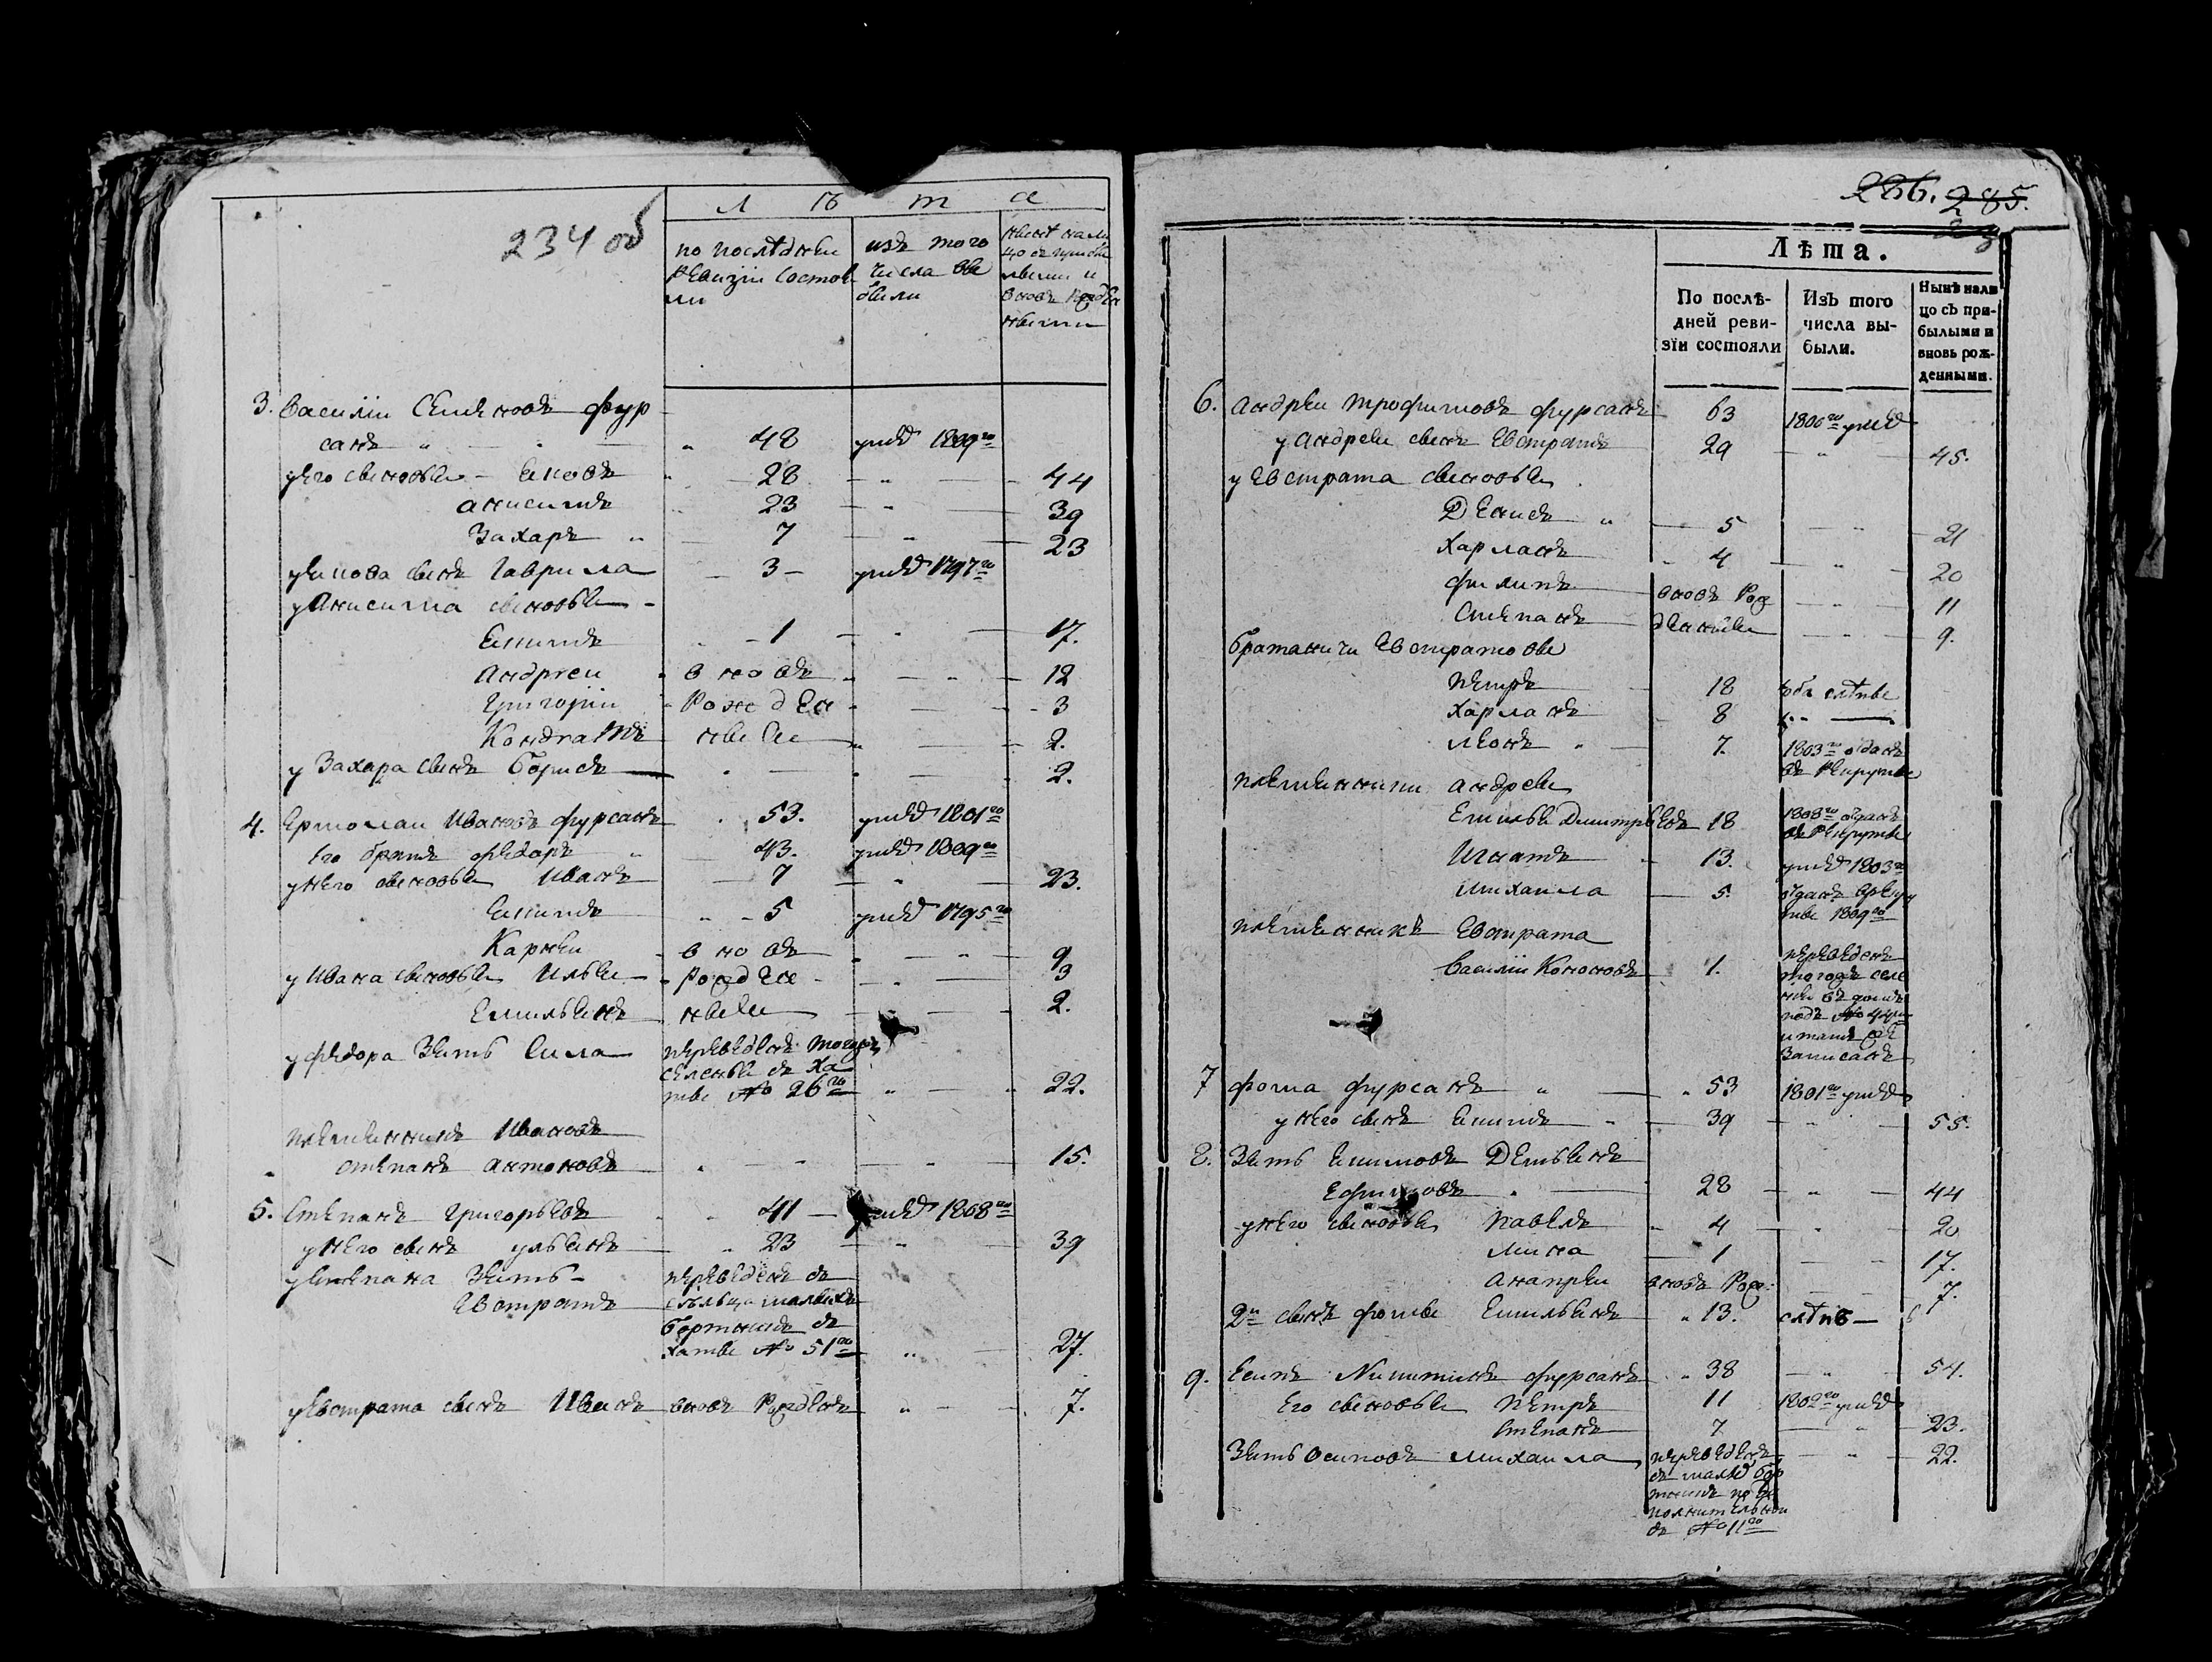 234 об
Л ѣ т а
по последнеи ревизіи состоя ли
изъ того числа вы были
ныне на ли цо съ прибы лыми и вновь рожден ными
3. Василіи Семеновъ фур
санъ 48 умре 1809го
у его сыновья 28 44
анисимъ 23 39
Захаръ 7 23
сынъ Гаврила 3 умре 1797го
у Анисима сыновья
Екимъ 1 17.
Андреи вновь 12
Григоріи рожден 3
Кондратъ ные 2.
у Захара сынъ Борисъ 2.
4. Ермолаи Ивановъ фурсанъ 53. умре 1801го
его братъ федоръ 43. умре 1809го
у него сыновья Иванъ 7 23.
Екимъ 5 умре 1795го
Карнеи вновь 9
у Ивана сыновья Илья рожден 3
Емельянъ ные 2.
у федора зять Сила переведенъ тогожъ
селенья съ ха
ты № 26го 22.
племянникъ Ивановъ
степанъ антоновъ 15.
5. Степанъ Григорьевъ 41 умре 1808го
у него сынъ ульянъ 23 39
у степана зять переведенъ съ
Евстратъ сельца малыхъ
Бортникъ съ
хаты № 51го 27.
у Евстрата сынъ Иванъ вновь рожденъ 7.
286. 285.
Лѣта.
По послѣ-
дней реви-
зїи состояли
Изъ того
числа вы-
были.
Нынѣ нали
цо съ при-
былыми и
вновь рож-
денными.
6. Андреи трофимовъ фурсанъ 63 1806го умре
у Андрея сынъ Евстратъ 29 45.
у Евстрата сыновья
Денисъ 5 21
Харланъ 4 20
филипъ вновь рож 11
Степанъ денные 9.
братаничи Евстратовы
Петръ 18 оба слѣпы
Харланъ 8
Леонъ 7. 1803го отданъ
въ рекруты
племянники андрея
Емелья Дмитріевъ 18 1808го отданъ
въ рекруты
Игнатъ 13. умре 1803го
Михаила 5. отданъ врекру
ты 1809го
племянникъ Евстрата
Василіи Кононовъ 1. переведенъ
тогожъ селе
нья въ домъ
подъ №
и тамъ же
записанъ
7 фома фурсанъ 53 1801го умре
у него сынъ Екимъ 39 55.
8. Зять Екимовъ Демьянъ
Ефимовъ 28 44
у него сыновья Павелъ 4 20
Мина 1 17.
Анапреи вновь рож: 7.
2й сынъ фомы Емельянъ 13. слѣпъ
9. Есипъ Никитинъ фурсанъ 38 54.
Его сыновья Петръ 11 1802го умре
Степанъ 7 23.
Зять Осиповъ Михаила переведенъ 22.
съ малыхъ бор
тникъ
съ № 11го